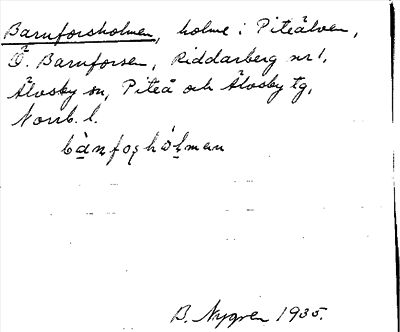 Barnforsholmen, holme i Piteälven,
Ö. Barnforsen, Riddarberg nr 1,
Älvsby sn, Piteå och Älvsby tg,
Norrb. l.
bànfoshòlman
B. Nygren 1935.